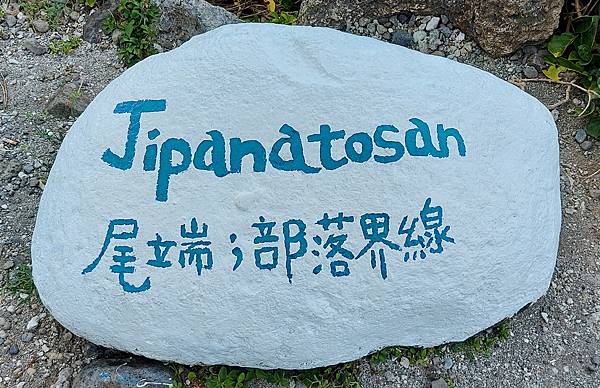 Jipanatosan
尾端；部落界線